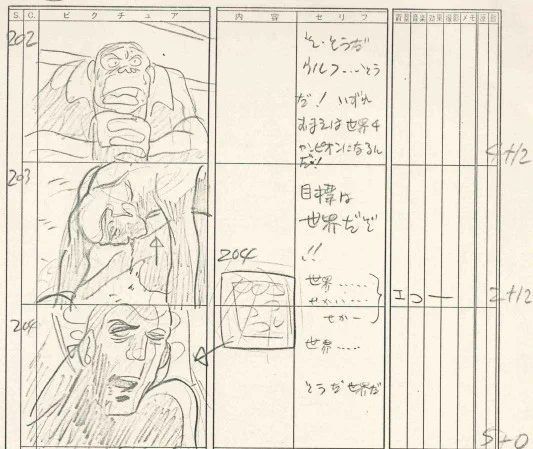 S. C. ピクチュア 内容 セリフ 背景 音楽 効果 撮影 メモ 原 動
202
そ、そうだ
ウルフ・・・そう
だ! いずれ
おまえは世界チ
ャンピオンになるん
だ!
4+12
203
目標は
世界だぞ
!!
204
世界・・・・・
せかい・・・・
せかー
エコー
2+12
204
世界・・・・・
そうだ世界だ
5+0